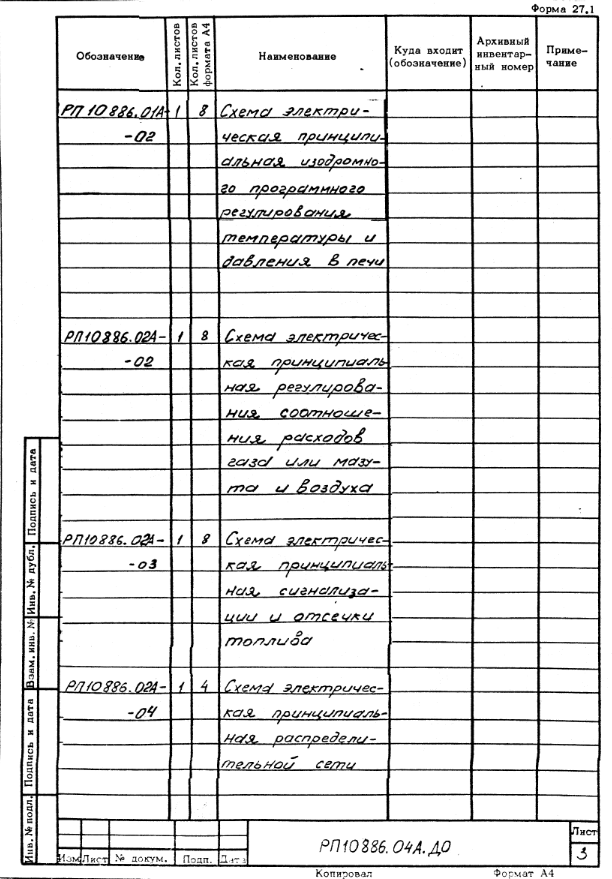 Форма 27.1
Обозначение
Кол. листов
Кол. листов формата А4
Наименование
Куда входит (обозначение)
Архивный инвентар-
ный номер
Приме-
чание
РП 10886.01А- 1 8 Схема электри-
-02 ческая принципи-
альная изодромно-
го программного
регулирования
температуры и
давления в печи
РП10886.02А- 1 8 Схема электричес-
-02 кая принципиаль
ная регулирова-
ния соотноше-
ния расходов
газа или мазу-
та и воздуха
РП10886.02А- 1 8 Схема электричес-
-03 кая принципиаль
ная сигнализа-
ции и отсечки
топлива
РП10886.02А- 1 4 Схема электричес-
-04 кая принципиаль-
ная распредели-
тельной сети
Инв. № подл.
Подпись и дата
Взам. инв. №
Инв. № дубл.
Подпись и дата
Изм Лист № докум. Подп. Дата
РП10886.04А.ДО
Лист
3
Копировал
Формат А4